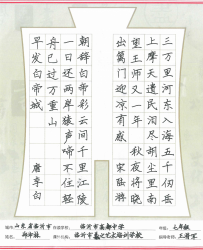 三万里河东入海五千仞岳
上摩天遗民泪尽胡尘里南
望王师又一年 秋夜将晓
出篱门迎凉有感 宋陆游
朝辞白帝彩云间千里江陵
一日还两岸猿声啼不住轻
舟已过万重山
早发白帝城 唐李白
山东省临沂市 临沂市高都中学 七年级
临沂市羲之艺术培训学校